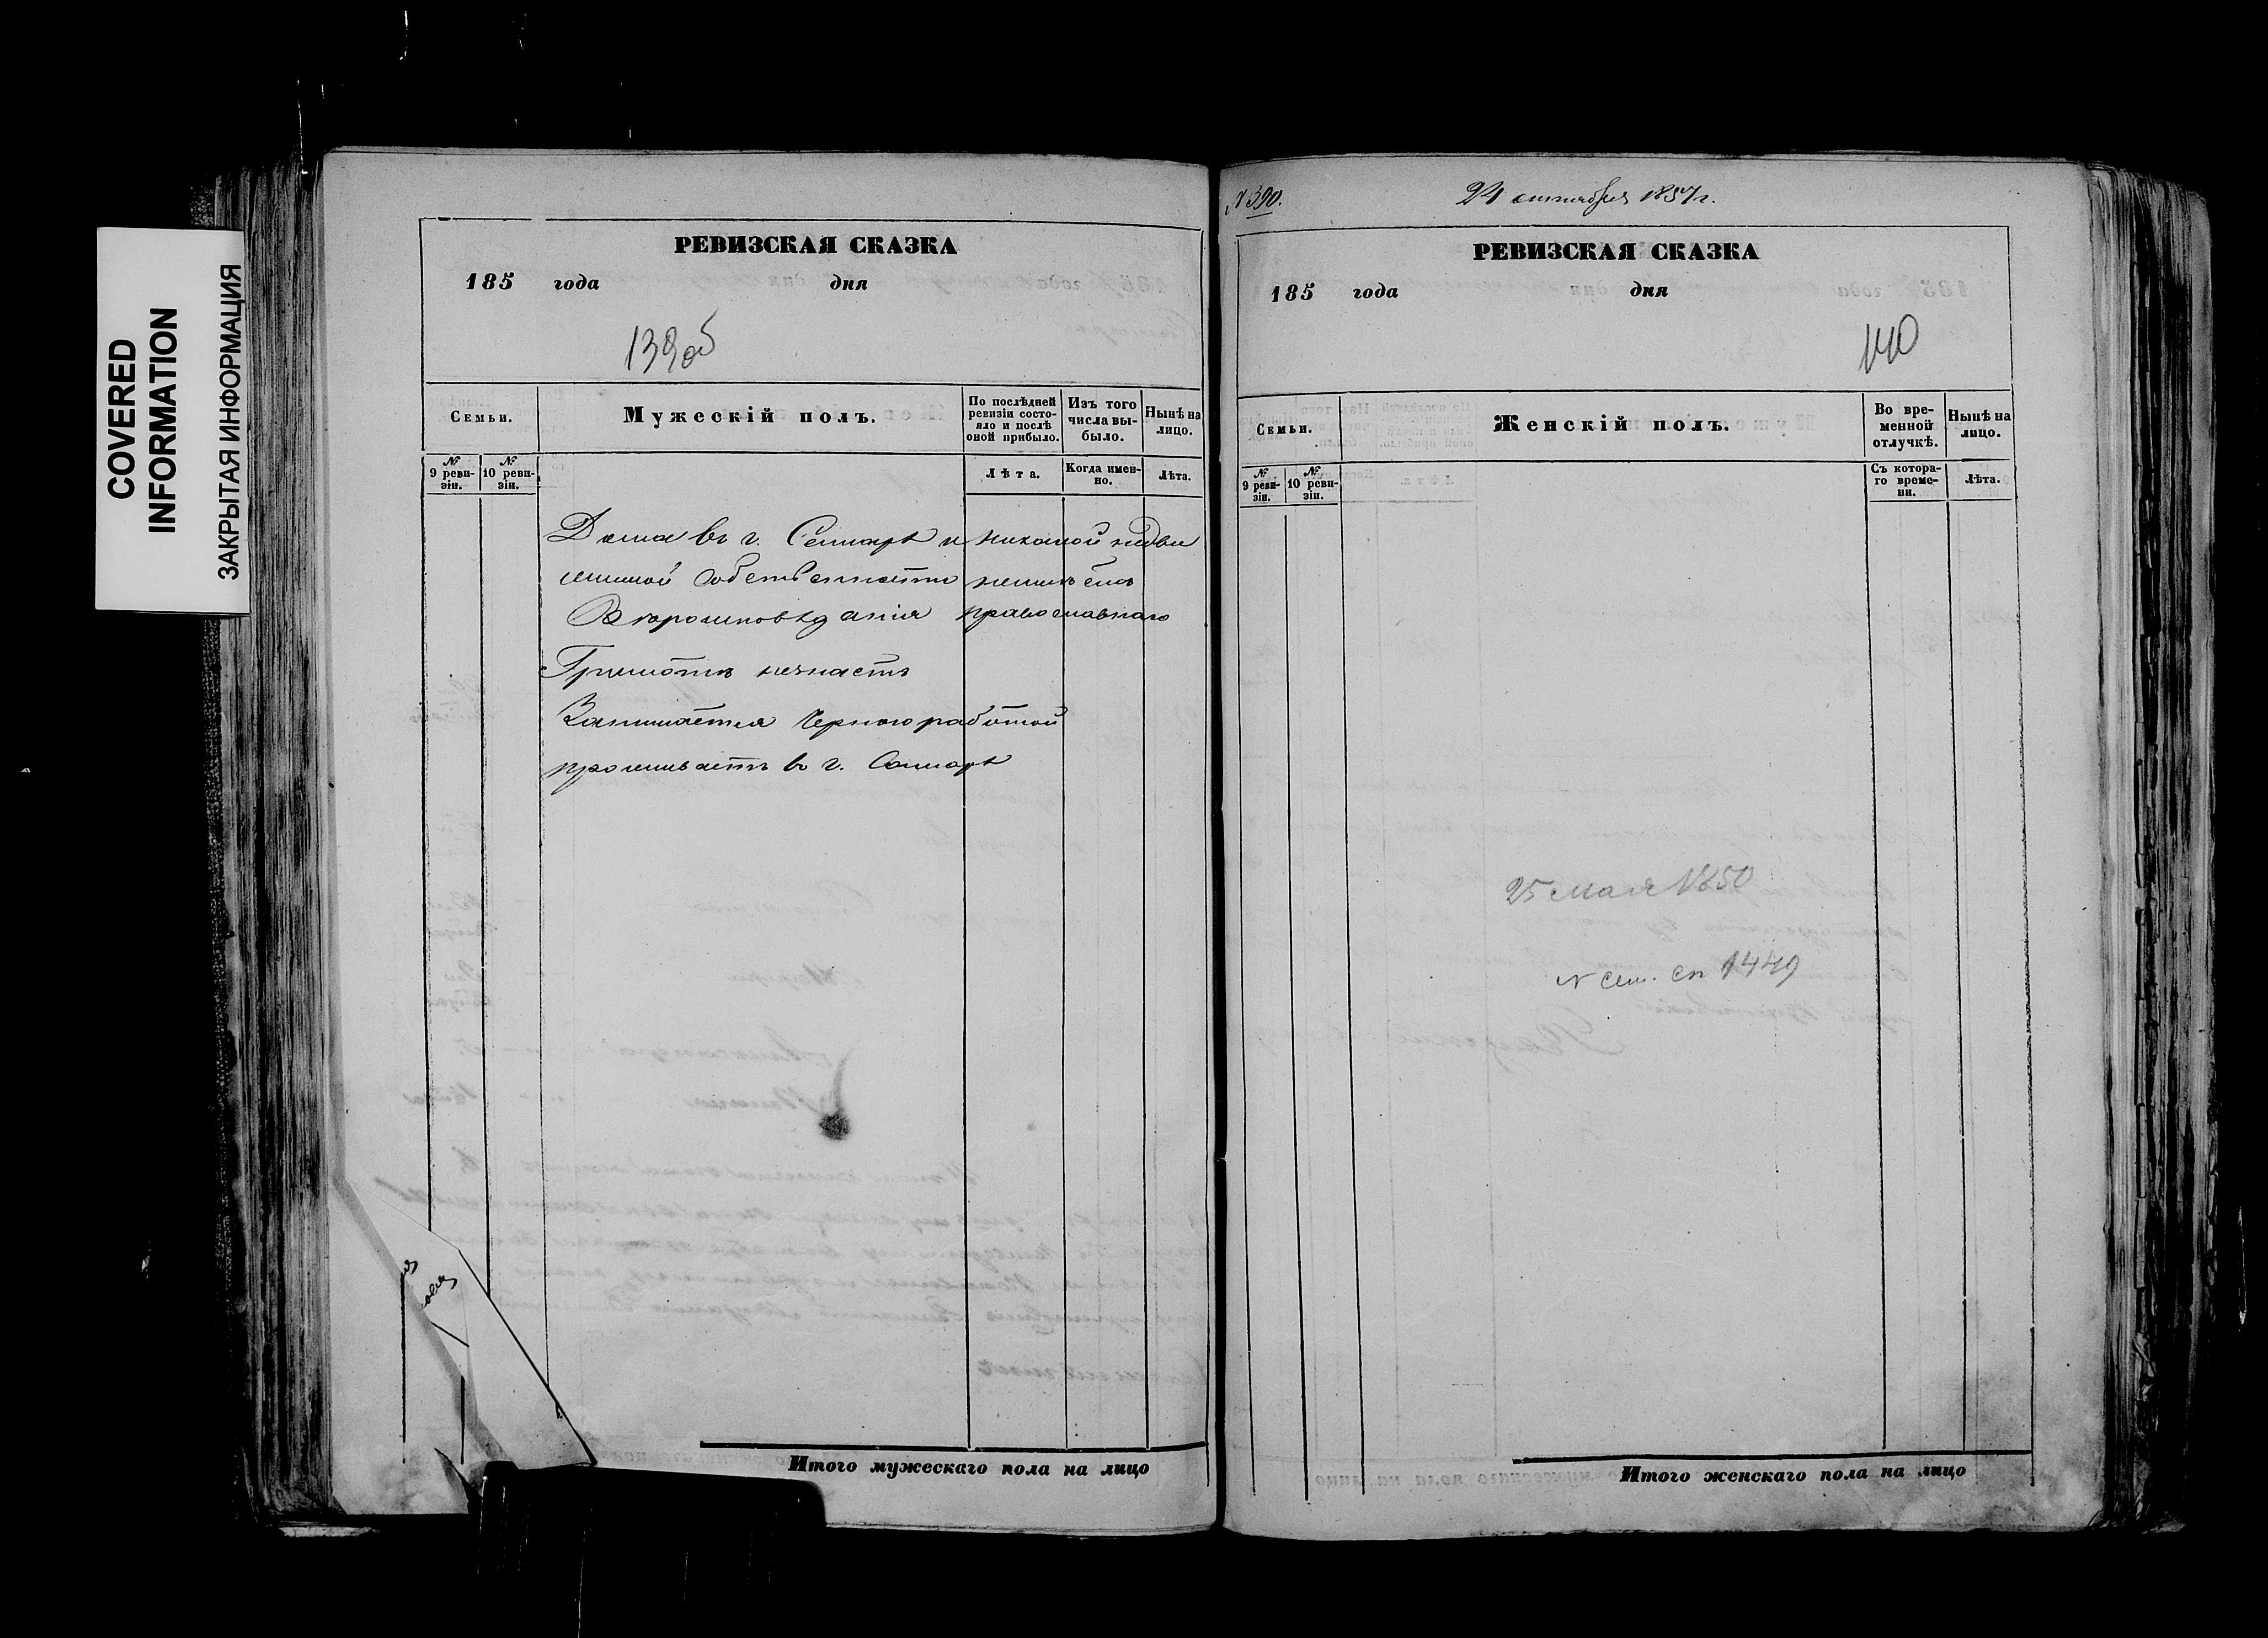 COVERED
INFORMATION
ЗАКРЫТАЯ ИНФОРМАЦИЯ
РЕВИЗСКАЯ СКАЗКА
185 года дня
139об
Семьи.
Мужескій полъ.
По послѣдней ревизіи состояло и послѣ оной прибыло.
Изъ того числа выбыло.
Нынѣ на лицо.
№ 9 ревизіи.
№ 10 ревизіи.
Лѣта.
Когда именно.
Лѣта.
Дома въ г. Самарѣ и никакой недви
жимой собственности неимѣетъ
Вѣроисповѣданія православнаго
Грамотѣ незнаетъ
Занимается Черною работой
проживаетъ в г. Самарѣ
Итого мужескаго пола на лицо
N 390.
24 октября 1857 г.
РЕВИЗСКАЯ СКАЗКА
185 года дня
140
Семьи.
Женскій полъ.
Во временной отлучкѣ.
Нынѣ на лицо.
№ 9 ревизіи.
№ 10 ревизіи.
Съ котораго времени.
Лѣта.
25 мая 1850
N сем. сп 1449
Итого женскаго пола на лицо